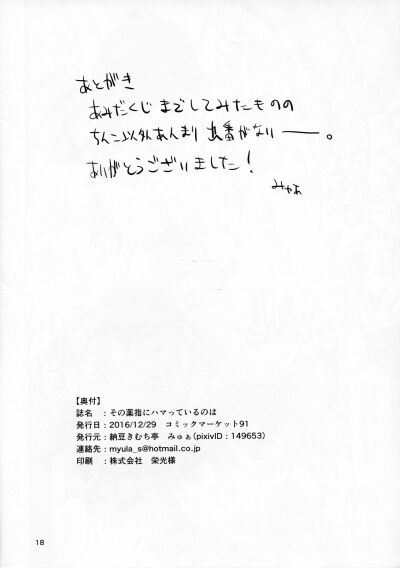 あとがき
あみだくじまでしてみたものの
ちんこ以外あんまり出番がないーー。
ありがとうございました!
みゅあ
【奥付】
誌名 :その薬指にハマっているのは
発行日:2016/12/29 コミックマーケット91
発行元:納豆きむち亭 みゅぁ(pixivID:149653)
連絡先:myula_s@hotmail.co.jp
印刷 :株式会社 栄光様
18